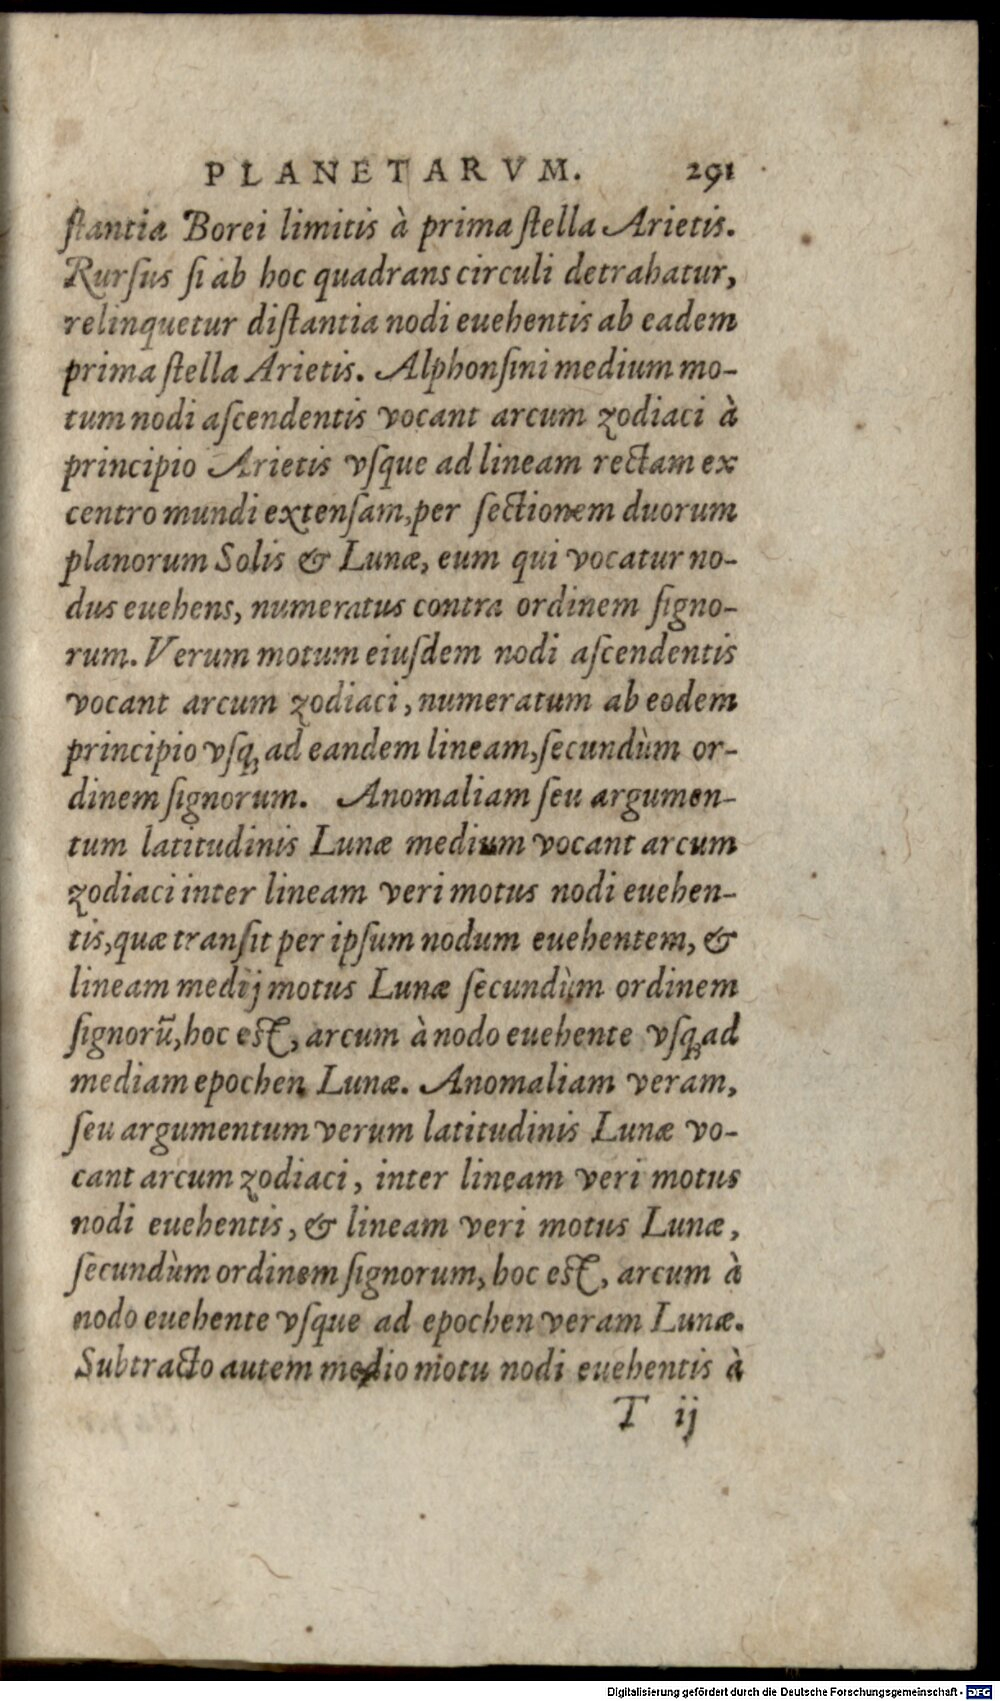 PLANETARVM. 291
ſtantia Borei limitis à prima ſtella Arietis.
Rurſus ſi ab hoc quadrans circuli detrahatur,
relinquetur diſtantia nodi euehentis ab eadem
prima ſtella Arietis. Alphonſini medium mo-
tum nodi aſcendentis vocant arcum zodiaci à
principio Arietis vſque ad lineam rectam ex
centro mundi extenſam, per ſectionem duorum
planorum Solis & Lunæ, eum qui vocatur no-
dus euehens, numeratus contra ordinem ſigno-
rum. Verum motum eiuſdem nodi aſcendentis
vocant arcum zodiaci, numeratum ab eodem
principio vſq; ad eandem lineam, ſecundùm or-
dinem ſignorum. Anomaliam ſeu argumen-
tum latitudinis Lunæ medium vocant arcum
zodiaci inter lineam veri motus nodi euehen-
tis, quæ tranſit per ipſum nodum euehentem, &
lineam medij motus Lunæ ſecundùm ordinem
ſignorũ, hoc eſt, arcum à nodo euehente vſq; ad
mediam epochen Lunæ. Anomaliam veram,
ſeu argumentum verum latitudinis Lunæ vo-
cant arcum zodiaci, inter lineam veri motus
nodi euehentis, & lineam veri motus Lunæ,
ſecundùm ordinem ſignorum, hoc eſt, arcum à
nodo euehente vſque ad epochen veram Lunæ.
Subtracto autem medio motu nodi euehentis à
T ij
Digitalisierung gefördert durch die Deutsche Forschungsgemeinschaft - DFG